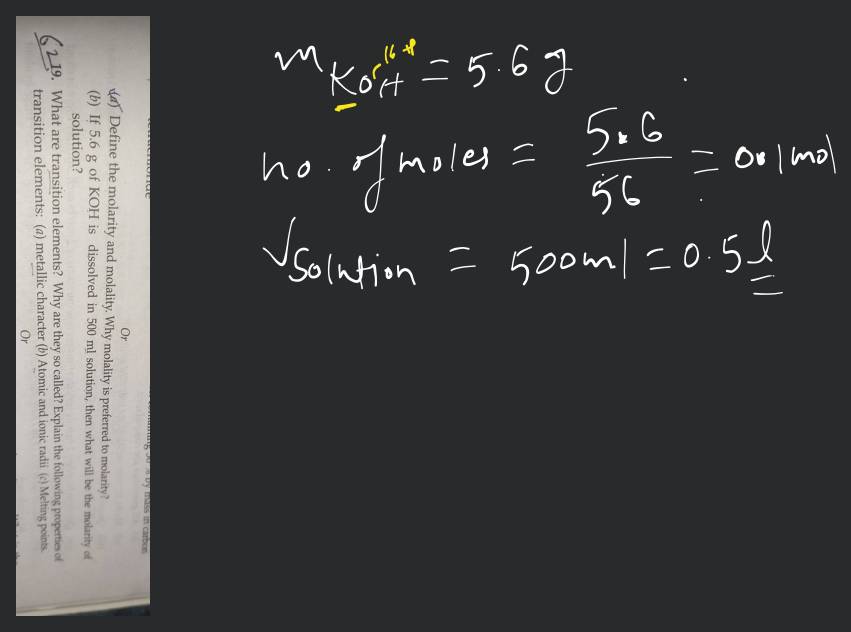 Or
(a) Define the molarity and molality. Why molality is preferred to molarity?
(b) If 5.6 g of KOH is dissolved in 500 ml solution, then what will be the molarity of
solution?
19. What are transition elements? Why are they so called? Explain the following properties of
transition elements: (a) metallic character (b) Atomic and ionic radii (c) Melting points.
Or
m KOH = 5.6 g
16
no. of moles = 5.6 / 56 = 0.1 mol
V solution = 500 ml = 0.5 l